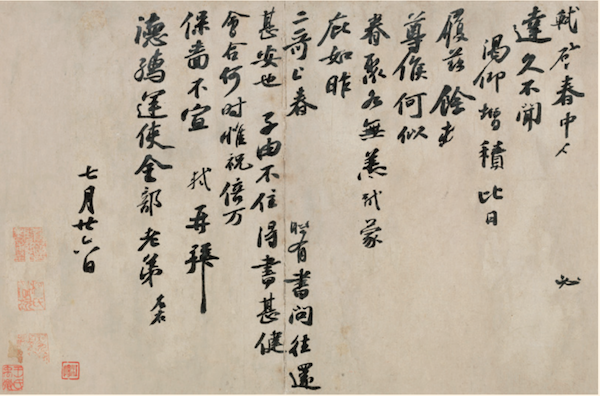 軾啓春中 必
達久不聞
渴仰增積比日
履茲餘
尊候何似
眷聚各無恙軾蒙
庇如昨
二哥上春 時有書問往還
甚安也子由不住得書甚健
會合何時惟祝倍万
保嗇不宣 軾再拜
德孺運使金部老弟 左右
七月廿六日